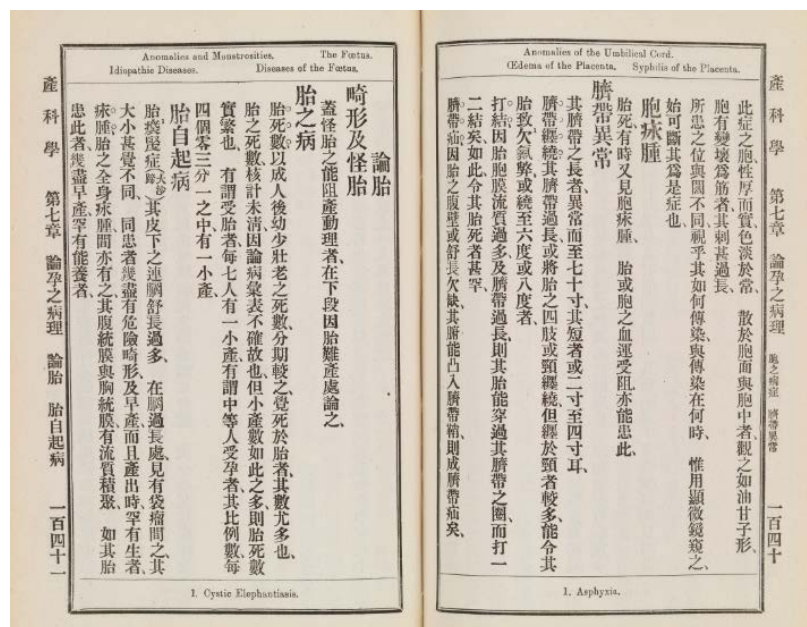 Anomalies of the Umbilical Cord.
Œdema of the Placenta. Syphilis of the Placenta.
產科學 第七章 論孕之病理 胞之病症 臍帶異常 一百四十
此症之胞性厚而實色淡於常、散於胞面與胞中者觀之如油甘子形、
胞有變壞爲筋者其刺甚過長、
所患之位與闊不同視乎其如何傳染與傳染在何時、惟用顯微鏡窺之、
始可斷其爲是症也、
胞痳腫
胎死有時又見胞痳腫、胎或胞之血運受阻亦能患此、
臍帶異常
其臍帶之長者異常而至七十寸其短者或二寸至四寸耳、
臍帶纏繞其臍帶過長或將胎之四肢或頸纏繞但纏於頸者較多能令其
胎致欠氣弊或繞至六度或八度者、
打結因胎胞膜流質過多及臍帶過長則其胎能穿過其臍帶之圈而打一
二結矣如此令其胎死者甚罕、
臍帶疝因胎之腹壁或舒長欠缺其腑能凸入臍帶鞘則成臍帶疝矣、
1. Asphyxia.
Anomalies and Monstrosities. The Fœtus.
Idiopathic Diseases. Diseases of the Fœtus.
論胎
畸形及怪胎
蓋怪胎之能阻產動理者在下段因胎難產處論之、
胎之病
胎死數以成人後幼少壯老之死數分期較之覺死於胎者其數尤多也、
胎之死數核計未清因論病彙表不確故也但小產數如此之多則胎死數
實繁也、有謂受胎者每七人有一小產有謂中等人受孕者其比例數每
四個零三分一之中有一小產、
胎自起病
胎其皮下之連膶舒長過多、在膶過長處見有袋瘤間之其
大小甚覺不同、同患者幾盡有危險畸形及早產而且產出時罕有生者、
痳腫胎之全身痳腫間亦有之其腹統膜與胸統膜有流質積聚、如其胎
患此者幾盡早產罕有能養者、
1. Cystic Elephantiasis.
產科學 第七章 論孕之病理 論胎 胎自起病 一百四十一